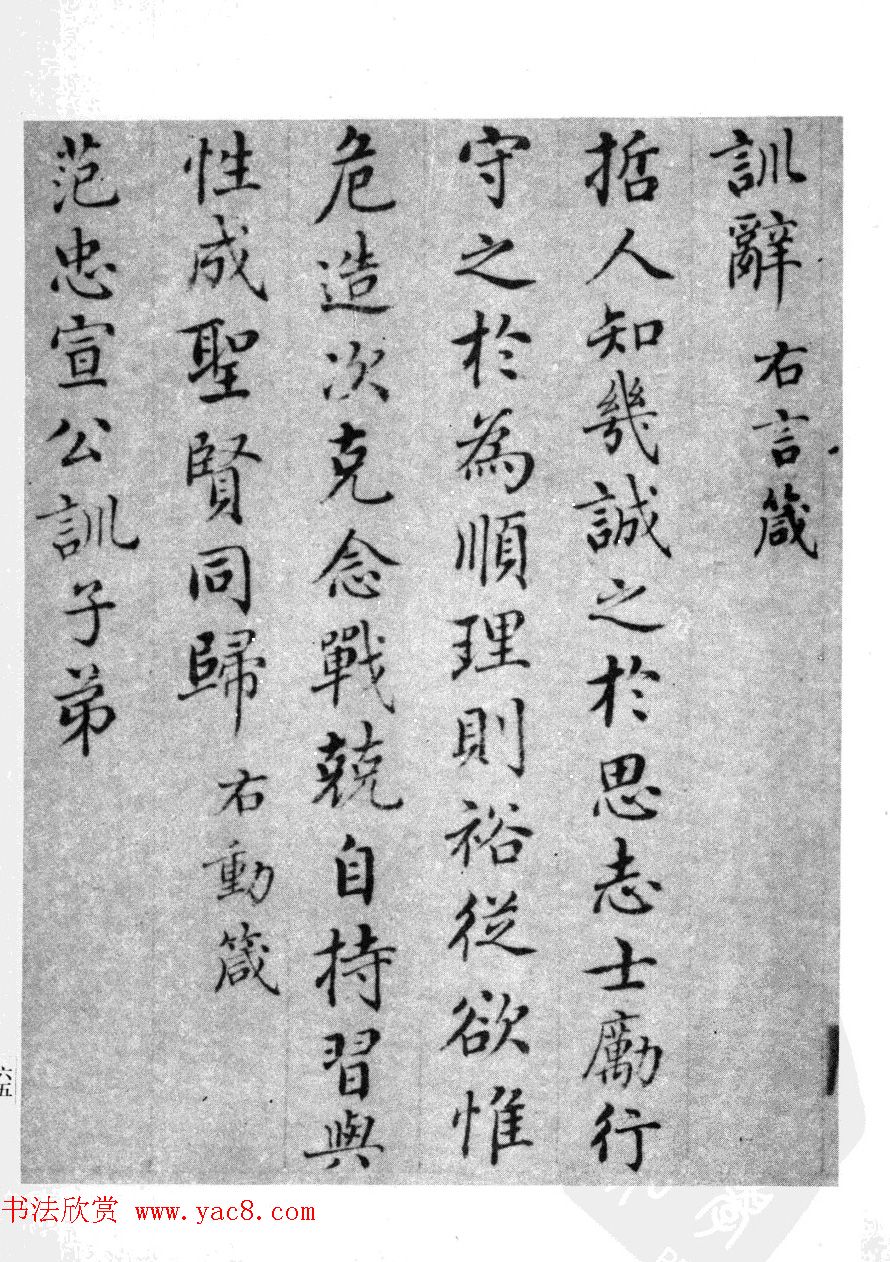 訓辭 右言箴
哲人知幾誠之於思志士勵行
守之於為順理則裕從欲惟
危造次克念戰兢自持習與
性成聖賢同歸 右動箴
范忠宣公訓子弟
六五
书法欣赏 www.yac8.com